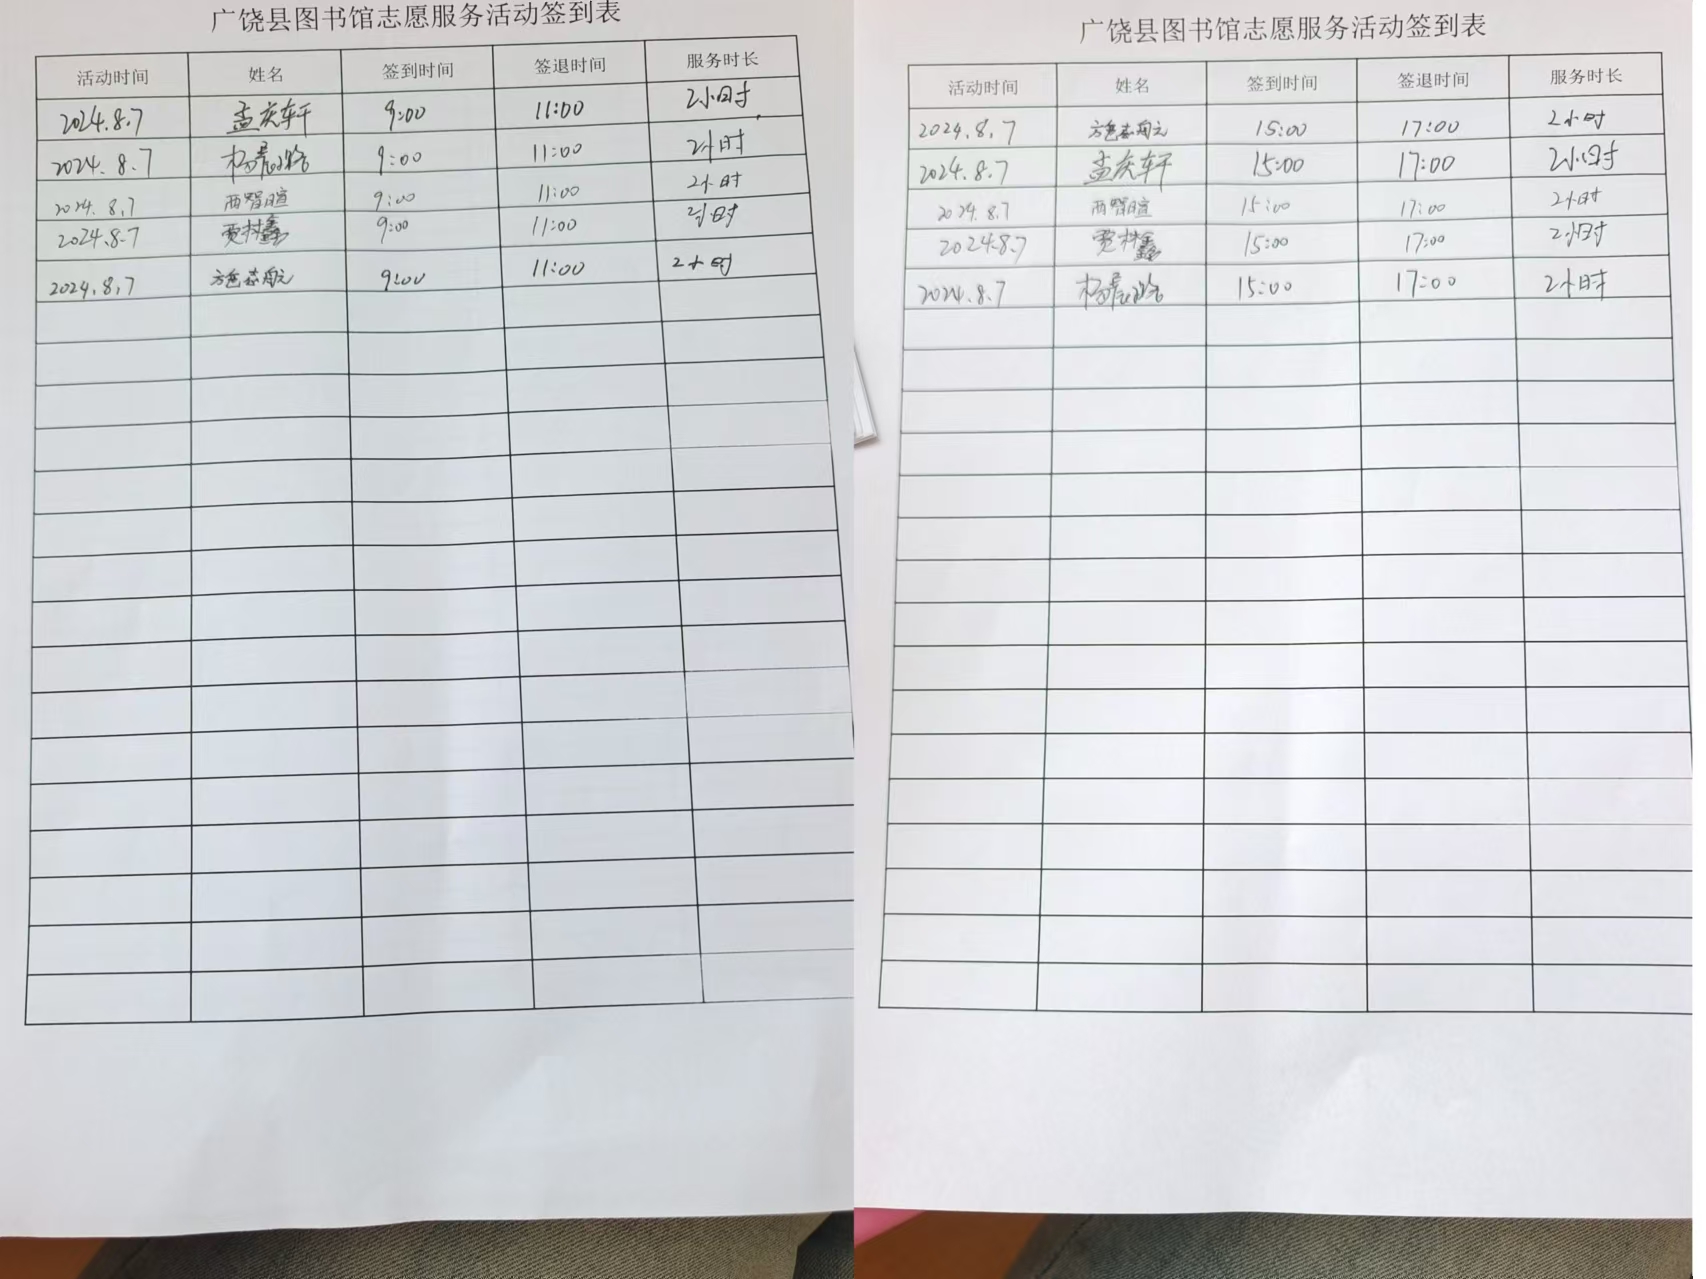 广饶县图书馆志愿服务活动签到表
活动时间 姓名 签到时间 签退时间 服务时长
2024.8.7 孟庆轩 9:00 11:00 2小时
2024.8.7 9:00 11:00 2小时
2024.8.7 9:00 11:00 2小时
2024.8.7 9:00 11:00 2小时
2024.8.7 9:00 11:00 2小时
广饶县图书馆志愿服务活动签到表
活动时间 姓名 签到时间 签退时间 服务时长
2024.8.7 15:00 17:00 2小时
2024.8.7 孟庆轩 15:00 17:00 2小时
2024.8.7 15:00 17:00 2小时
2024.8.7 15:00 17:00 2小时
2024.8.7 15:00 17:00 2小时